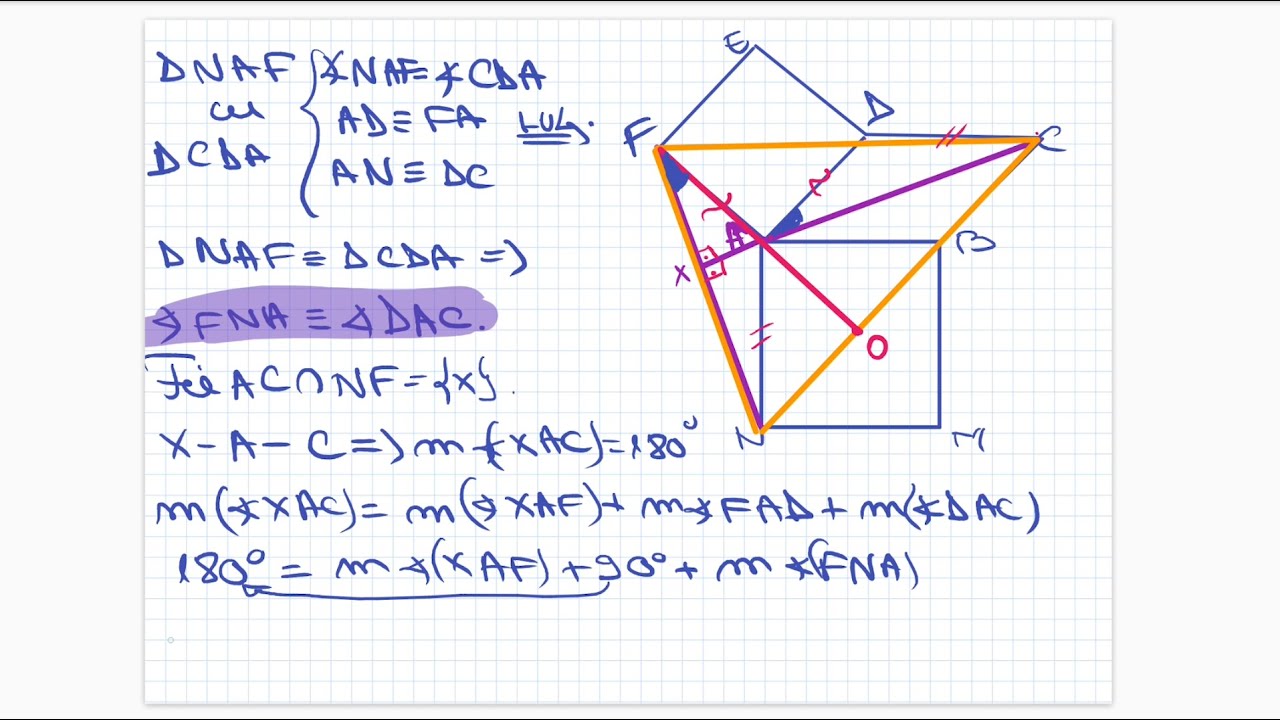 ΔNAF
cu
ΔCDA
∢NAF = ∢CDA
AD ≡ FA
LUL.
AN ≡ DC
ΔNAF ≡ ΔCDA =>
∢FNA ≡ ∢DAC.
Fie AC∩NF={X}.
X-A-C => m∢(XAC)=180°
m(∢XAC)= m(∢XAF)+ m∢FAD + m(∢DAC)
180° = m∢(XAF) + 90° + m∢(FNA)
E
D
F
C
A
B
X
O
N
M